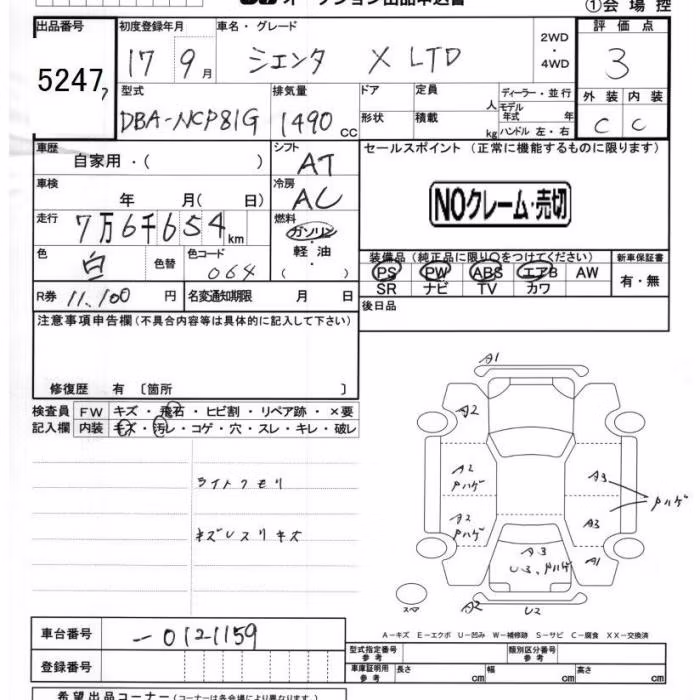 オークション出品申込書
①会場控
出品番号
5247
初度登録年月
17 9月
車名・グレード
シエンタ X LTD
2WD
・
4WD
評価点
3
外装 内装
C C
型式
DBA-NCP81G
排気量
1490 CC
ドア
形状
定員
人
積載
kg
ディーラー・並行
モデル年式 年
ハンドル 左・右
車歴
自家用・( )
シフト
AT
セールスポイント (正常に機能するものに限ります)
NOクレーム・売切
車検
年 月( 日)
冷房
AC
走行
7万6千654km
燃料
ガソリン
・
軽油
・
( )
色
白
色替
色コード
064
装備品 (純正品に限り○をつけてください)
PS PW ABS エアB AW
SR ナビ TV カワ
新車保証書
有・無
R券 11,100 円
名変通知期限 月 日
後日品
注意事項申告欄 (不具合内容等は具体的に記入して下さい)
修復歴 有 〔箇所 〕
検査員記入欄
FW キズ・飛石・ヒビ割・リペア跡・×要
内装 キズ・汚レ・コゲ・穴・スレ・キレ・破レ
ライトクモリ
キズレスリキズ
A1
A2
A2
Pハゲ
A3
Pハゲ
A2
Pハゲ
A3
A3
U3、Pハゲ
A1
スペア
A2
U2
A-キズ E-エクボ U-凹み W-補修跡 S-サビ C-腐食 XX-交換済
車台番号
-0121159
登録番号
型式指定番号
参考
類別区分番号
参考
車庫証明用
参考
長さ cm
幅 cm
高さ cm
希望出品コーナー (コーナーは各会場により異なります)